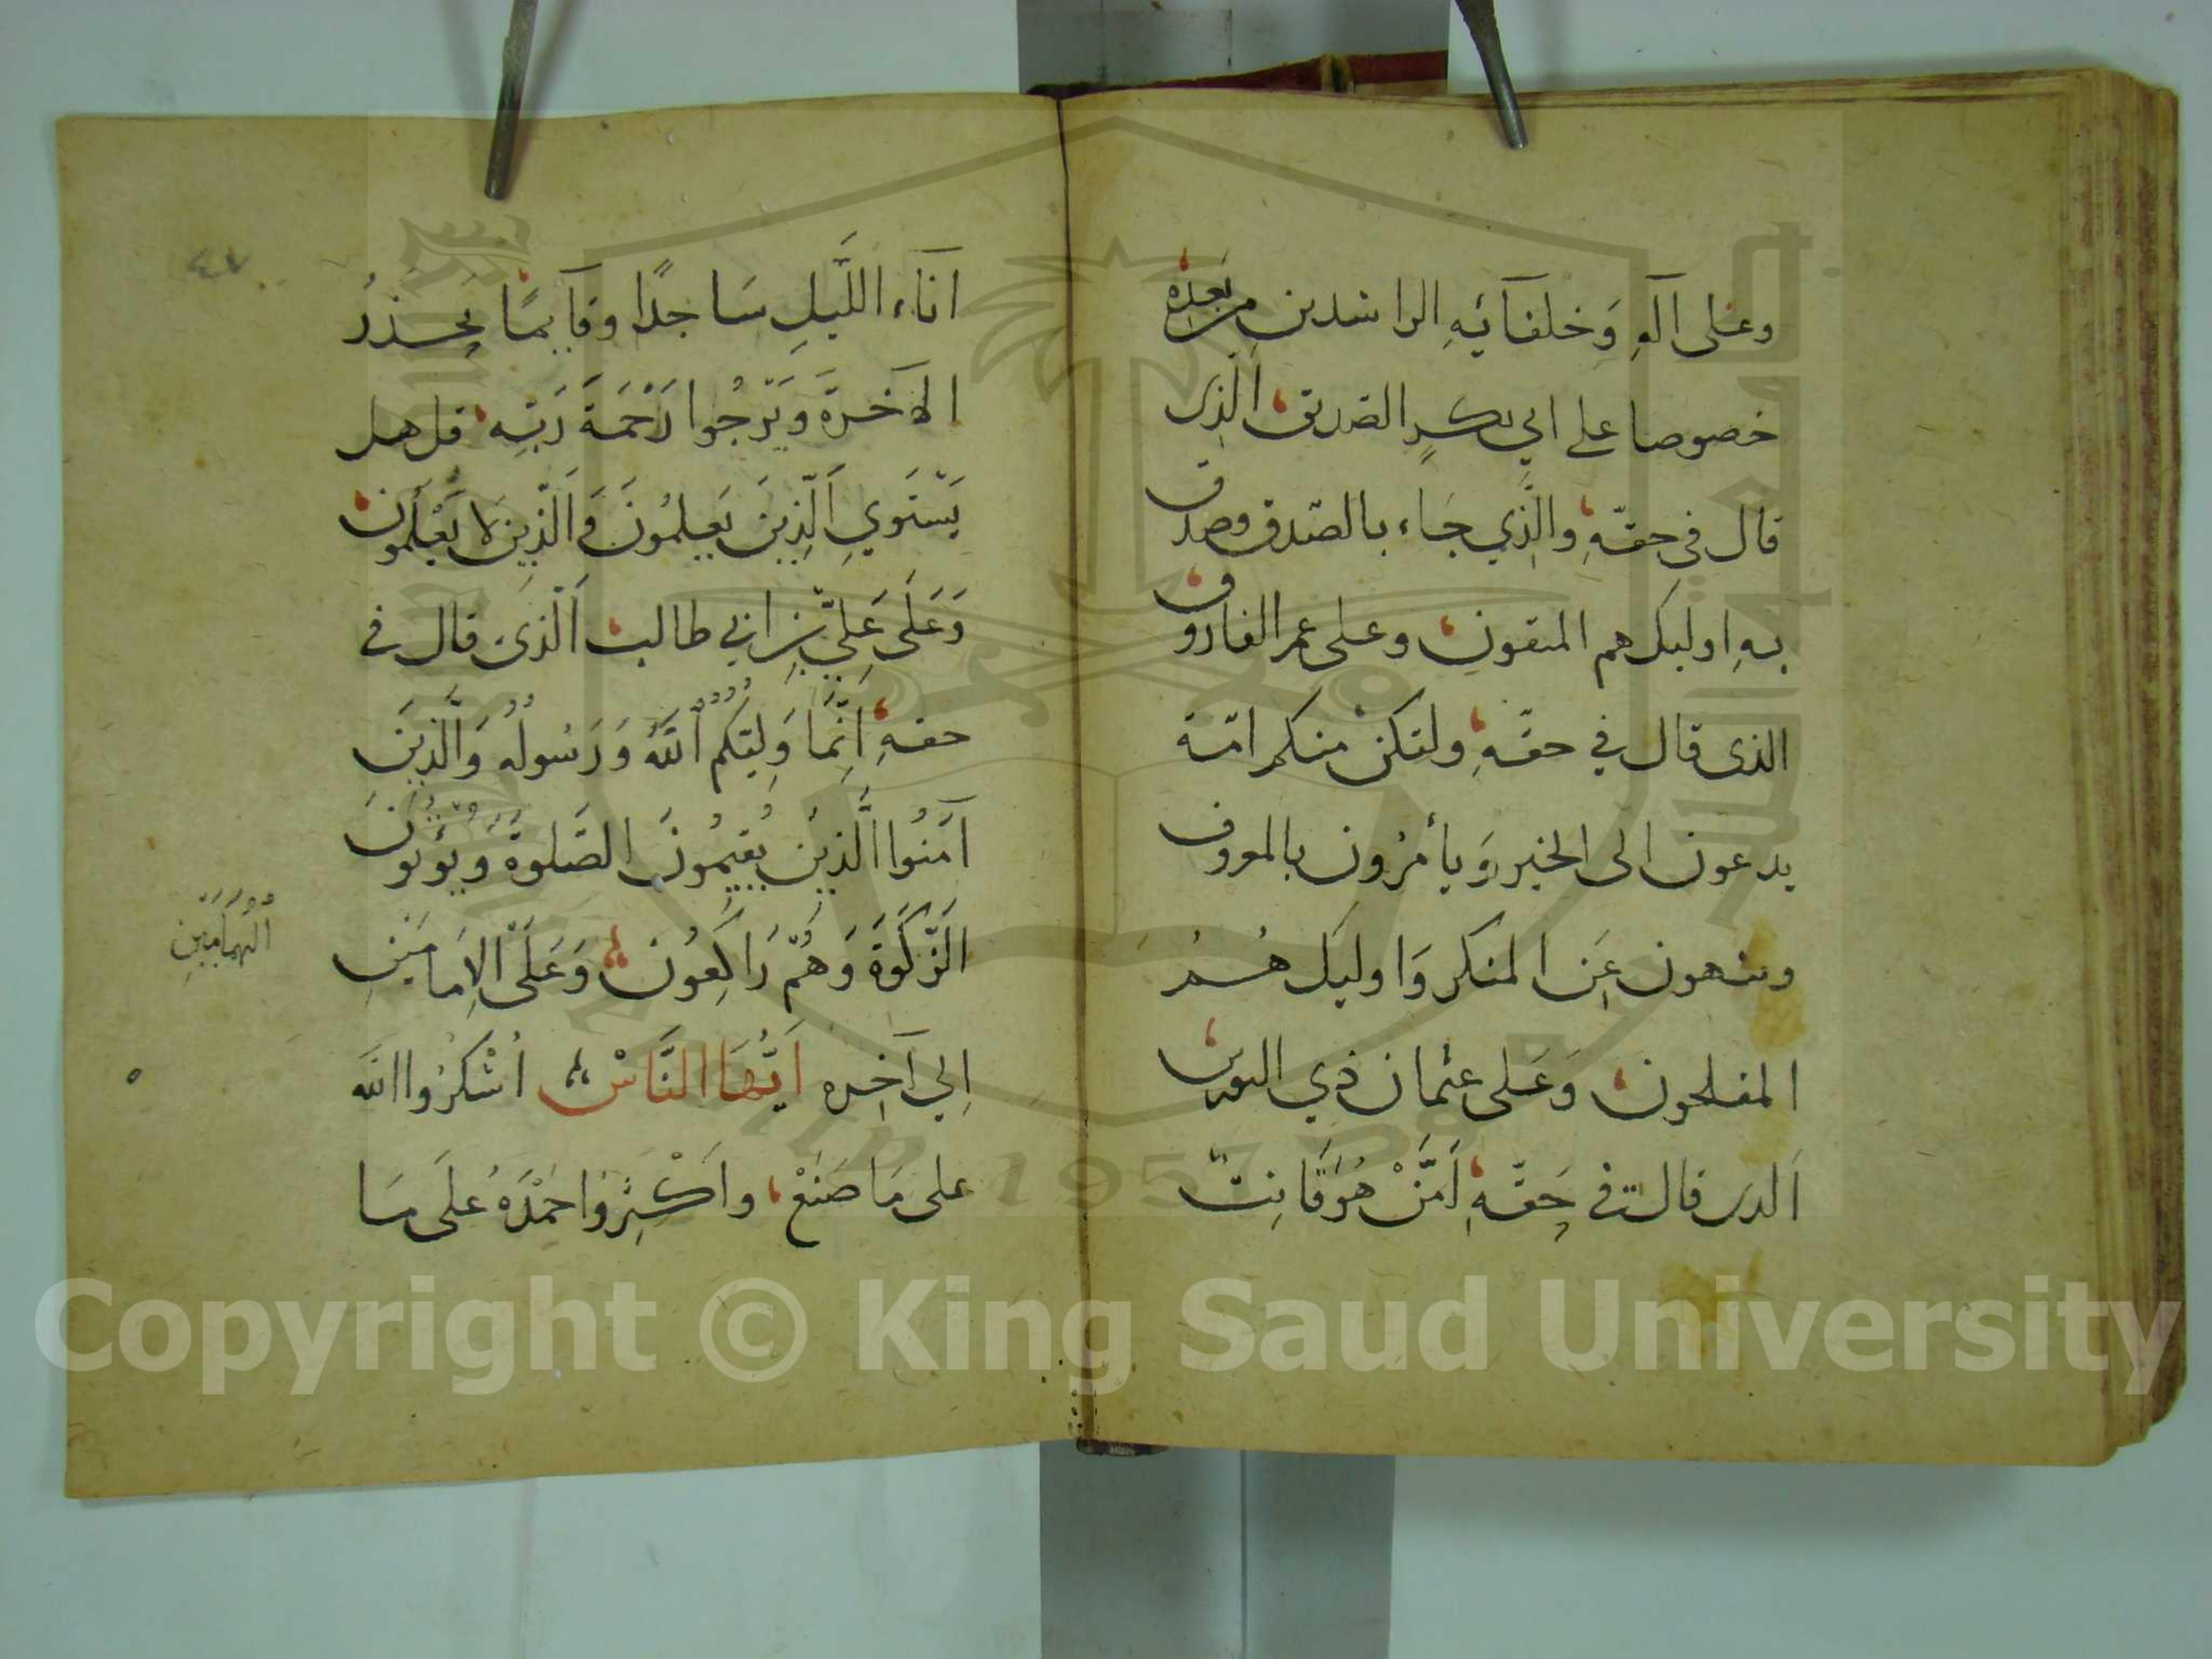 وعلى آلهِ وَخلفآئهِ الراشدين من بعده
خصوصا على ابي بكرٍ الصديق الَّذى
قال فى حقّهِ والَّذي جَاء بالصّدق وصدق
بهِ اوليك هم المتقون وعلى عمر الفاروق
الذى قال في حقّهِ ولتكنْ منكم امّة
يدعون الى الخير وَيأمرُون بالمعروف
وينهون عَن المنكر وَاوليَك هُمُ
المفلحون وَعَلى عثمان ذي النورين
اَلذى قال فى حَقّهِ اَمَّنْ هُوَ قَانِتٌ
آنَآء اللَّيلِ سَاجدًا وقآيمًا يَحذرُ
الآخرةَ وَيَرْجُوا رَحْمَةَ رَبّهِ قل هل
يَسْتَوي اَلّذِينَ يَعلمُونَ وَالَّذينَ لَا يَعْلَمُون
وَعَلَى عَلِيّ بْنِ ابي طالب اَلّذى قال فى
حقهِ اِنَّمَا وَلِيّكُمُ اُللَّهُ وَرَسُولُهُ وَالَّذِينَ
آمَنُوا الَّذِينَ يُقِيمُونَ الصَّلوةَ وَيُؤتُونَ
الَزّكَوةَ وَهُمْ رَاكِعُونَ وَعَلَى الاِمَامَيْنِ
الْهُمَامَيْنِ
اِلي آخِره اَيُّهَا النَّاسْ اُشْكرُوا اللَّه
على مَا صَنَعْ واَكْثِرُوا حَمْدَهُ عَلَى مَا
٤٧
Copyright © King Saud University
1957